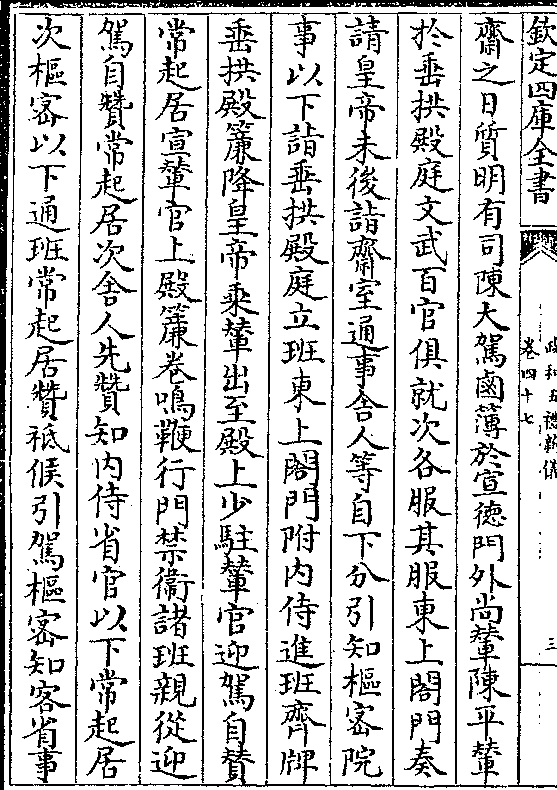 欽定四庫全書
政和五禮新儀
卷四十七
三
齋之日質明有司陳大駕鹵簿於宣德門外尚輦陳平輦
於垂拱殿庭文武百官俱就次各服其服東上閤門奏
請皇帝未後詣齋室通事舍人等自下分引知樞密院
事以下詣垂拱殿庭立班東上閤門附內侍進班齊牌
垂拱殿簾降皇帝乘輦出至殿上少駐輦官迎駕自贊
常起居宣輦官上殿簾卷鳴鞭行門禁衛諸班親從迎
駕自贊常起居次舍人先贊知內侍省官以下常起居
次樞密以下通班常起居贊祗候引駕樞密知客省事